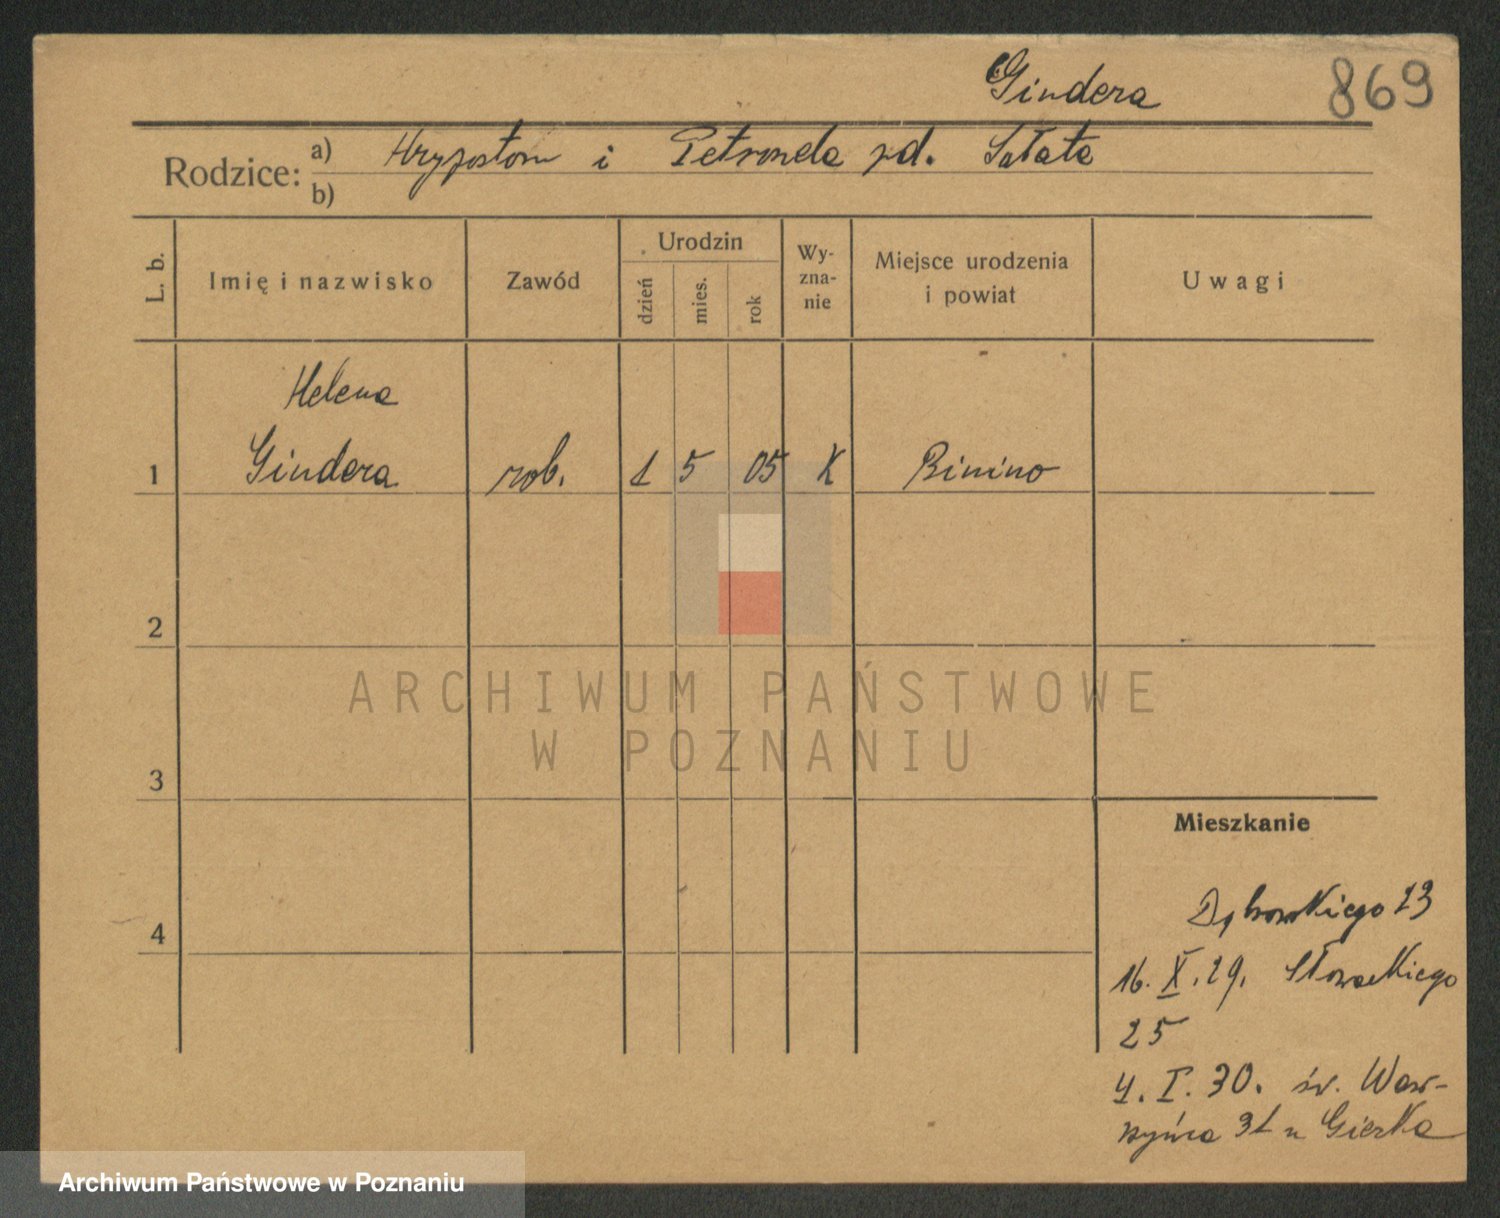 Gindera 869
Rodzice: a) Hryzostom i Petronela zd. Sałata
b)
L. b. Imię i nazwisko Zawód Urodzin dzień mies. rok Wy-zna-nie Miejsce urodzenia i powiat Uwagi
Helena
1 Gindera rob. 1 5 05 K Binino
2
ARCHIWUM PAŃSTWOWE
W POZNANIU
3
Mieszkanie
4
Dąbrowskiego 23
16. X. 29. Słowackiego
25
4. I. 30. św. Waw-
rzyńca 31 u Gierka
Archiwum Państwowe w Poznaniu